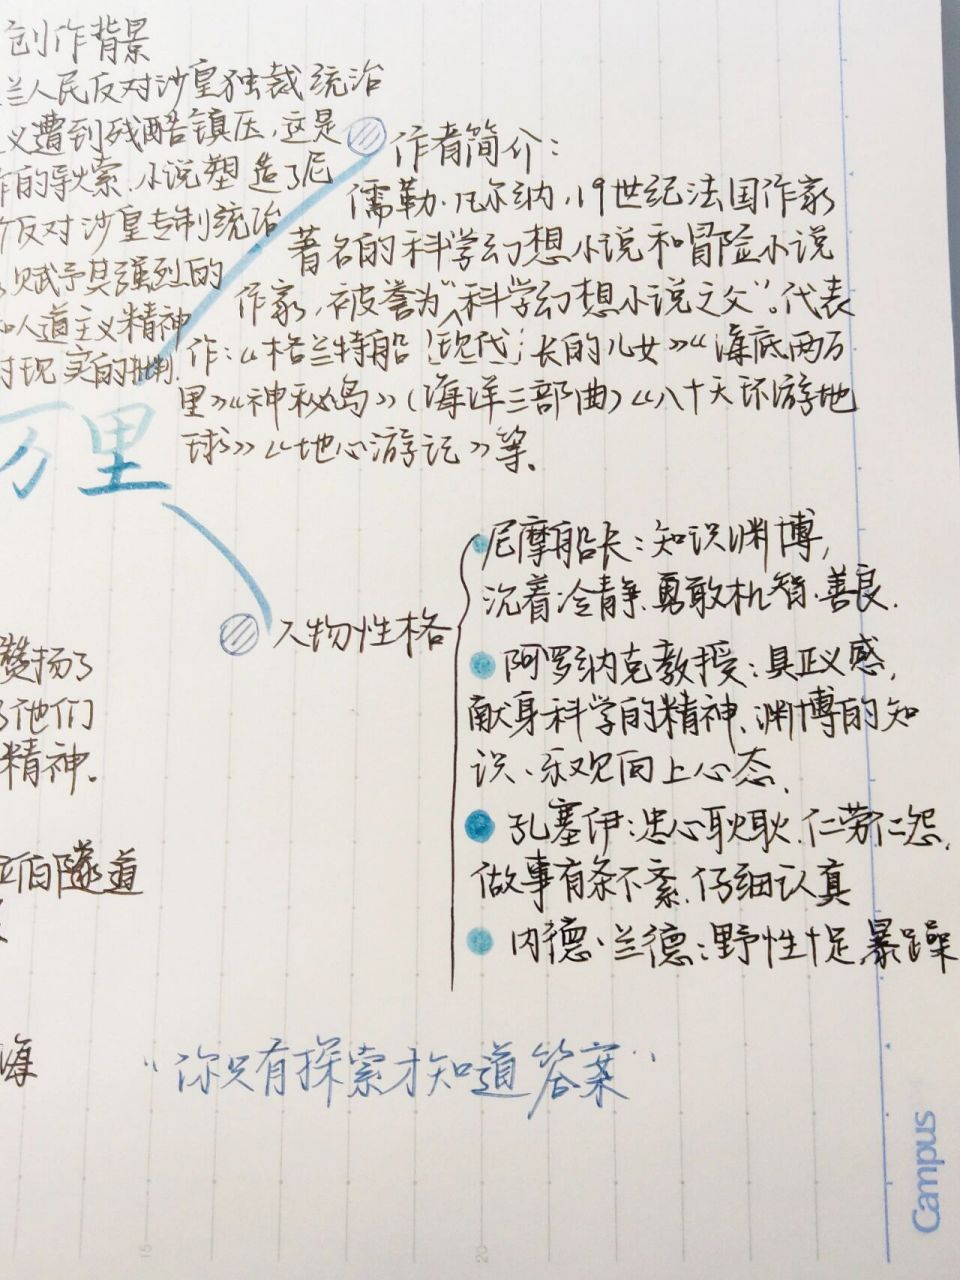 创作背景
兰人民反对沙皇独裁统治
义遭到残酷镇压,这是
作的导火索.小说塑造了尼
反对沙皇专制统治
赋予其强烈的
和人道主义精神
对现实的批判.
作者简介:
儒勒·凡尔纳,19世纪法国作家
著名的科学幻想小说和冒险小说
作家,被誉为"科学幻想小说之父"。代表
作:《格兰特船长的儿女》《海底两万
里》《神秘岛》(海洋三部曲)《八十天环游地
球》《地心游记》等.
万里
人物性格
尼摩船长:知识渊博,
沉着冷静.勇敢机智.善良.
阿罗纳克教授:具正义感,
献身科学的精神、渊博的知
识、乐观向上心态.
孔塞伊:忠心耿耿.仁劳仁怨.
做事有条不紊.仔细认真
内德·兰德:野性十足.暴躁
赞扬了
了他们
精神.
伯隧道
海
"你只有探索才知道答案"
Campus
15
20